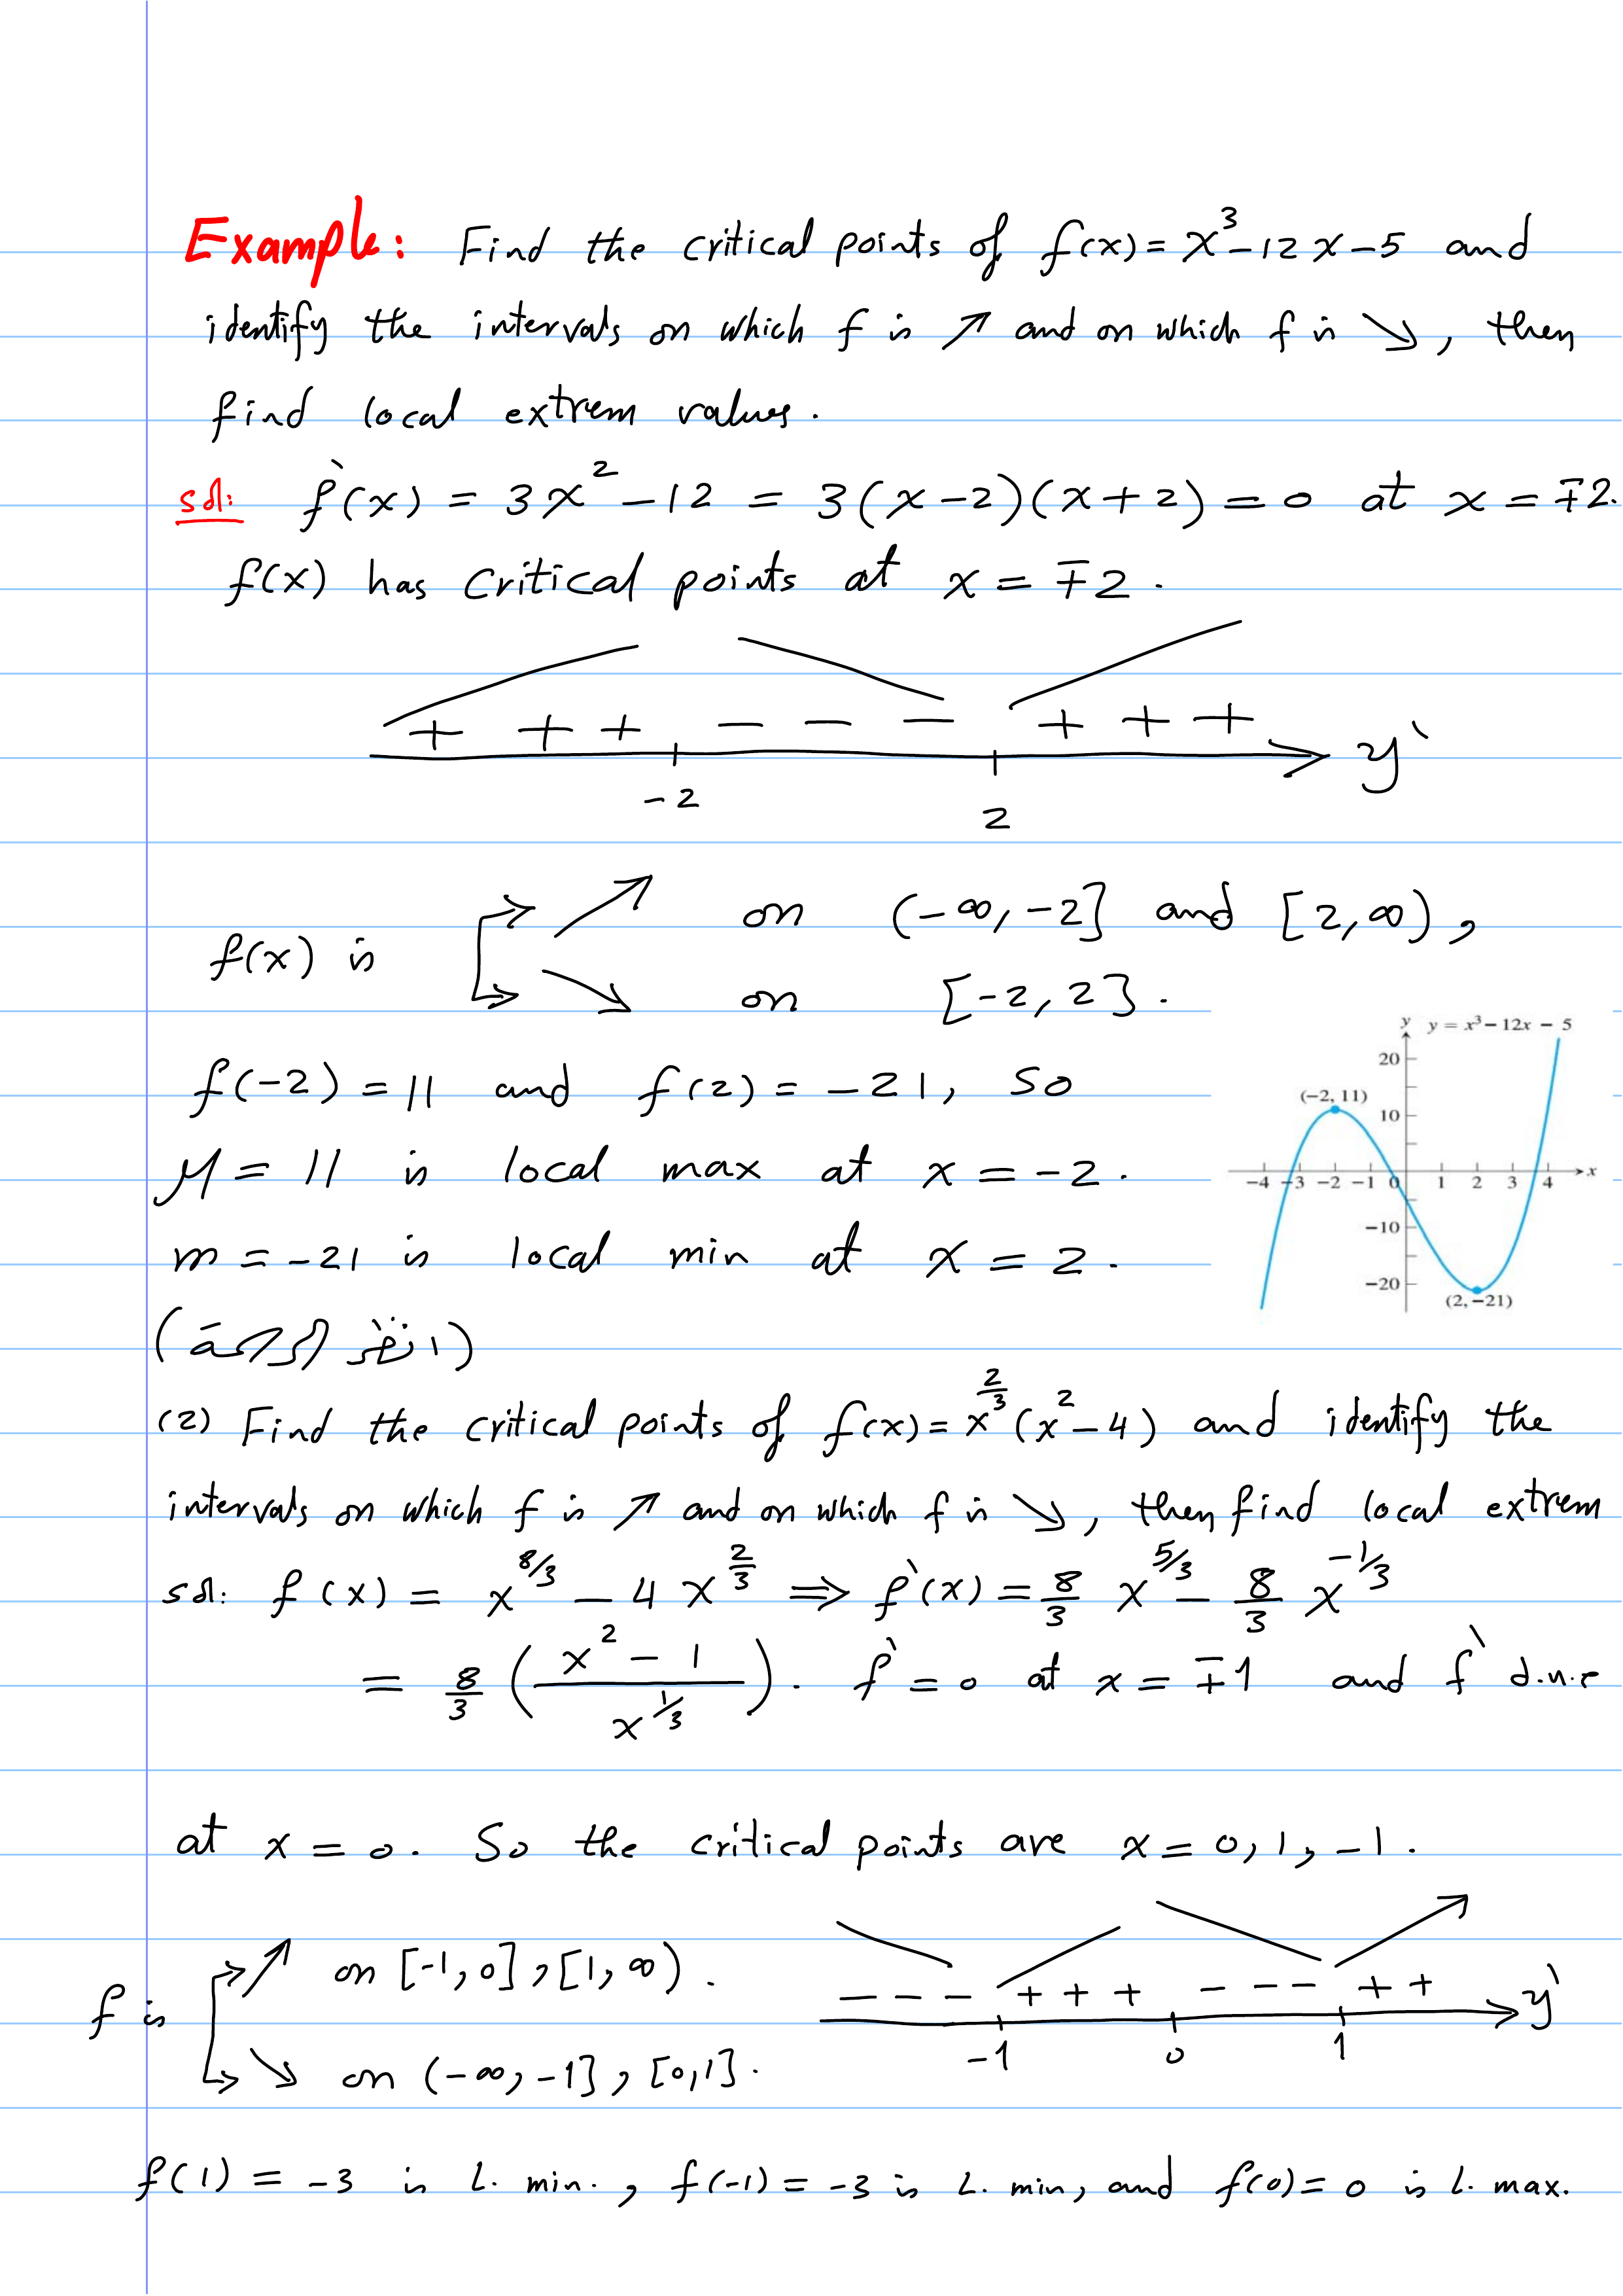 Example: Find the critical points of f(x) = x³ - 12x - 5 and
identify the intervals on which f is ↗ and on which f is ↘, then
find local extrem values.
sol: f`(x) = 3x² - 12 = 3(x-2)(x+2) = 0 at x = ∓2.
f(x) has critical points at x = ∓2.
+ + + - - - + + + y`
-2 2
f(x) is ↗ on (-∞, -2] and [2, ∞),
↘ on [-2, 2].
y y = x³ - 12x - 5
20
(-2, 11)
10
-4 -3 -2 -1 0 1 2 3 4 x
-10
-20
(2, -21)
f(-2) = 11 and f(2) = -21, so
M = 11 is local max at x = -2.
m = -21 is local min at x = 2.
(انظر الرسمة)
(2) Find the critical points of f(x) = x^(2/3) (x² - 4) and identify the
intervals on which f is ↗ and on which f is ↘, then find local extrem
sol: f(x) = x^(8/3) - 4x^(2/3) ⇒ f`(x) = 8/3 x^(5/3) - 8/3 x^(-1/3)
= 8/3 ((x² - 1)/x^(1/3)). f` = 0 at x = ∓1 and f` d.n.e
at x = 0. So the critical points are x = 0, 1, -1.
f is ↗ on [-1, 0], [1, ∞).
↘ on (-∞, -1], [0, 1].
- - - + + + - - - + + y`
-1 0 1
f(1) = -3 is L. min., f(-1) = -3 is L. min, and f(0) = 0 is L. max.